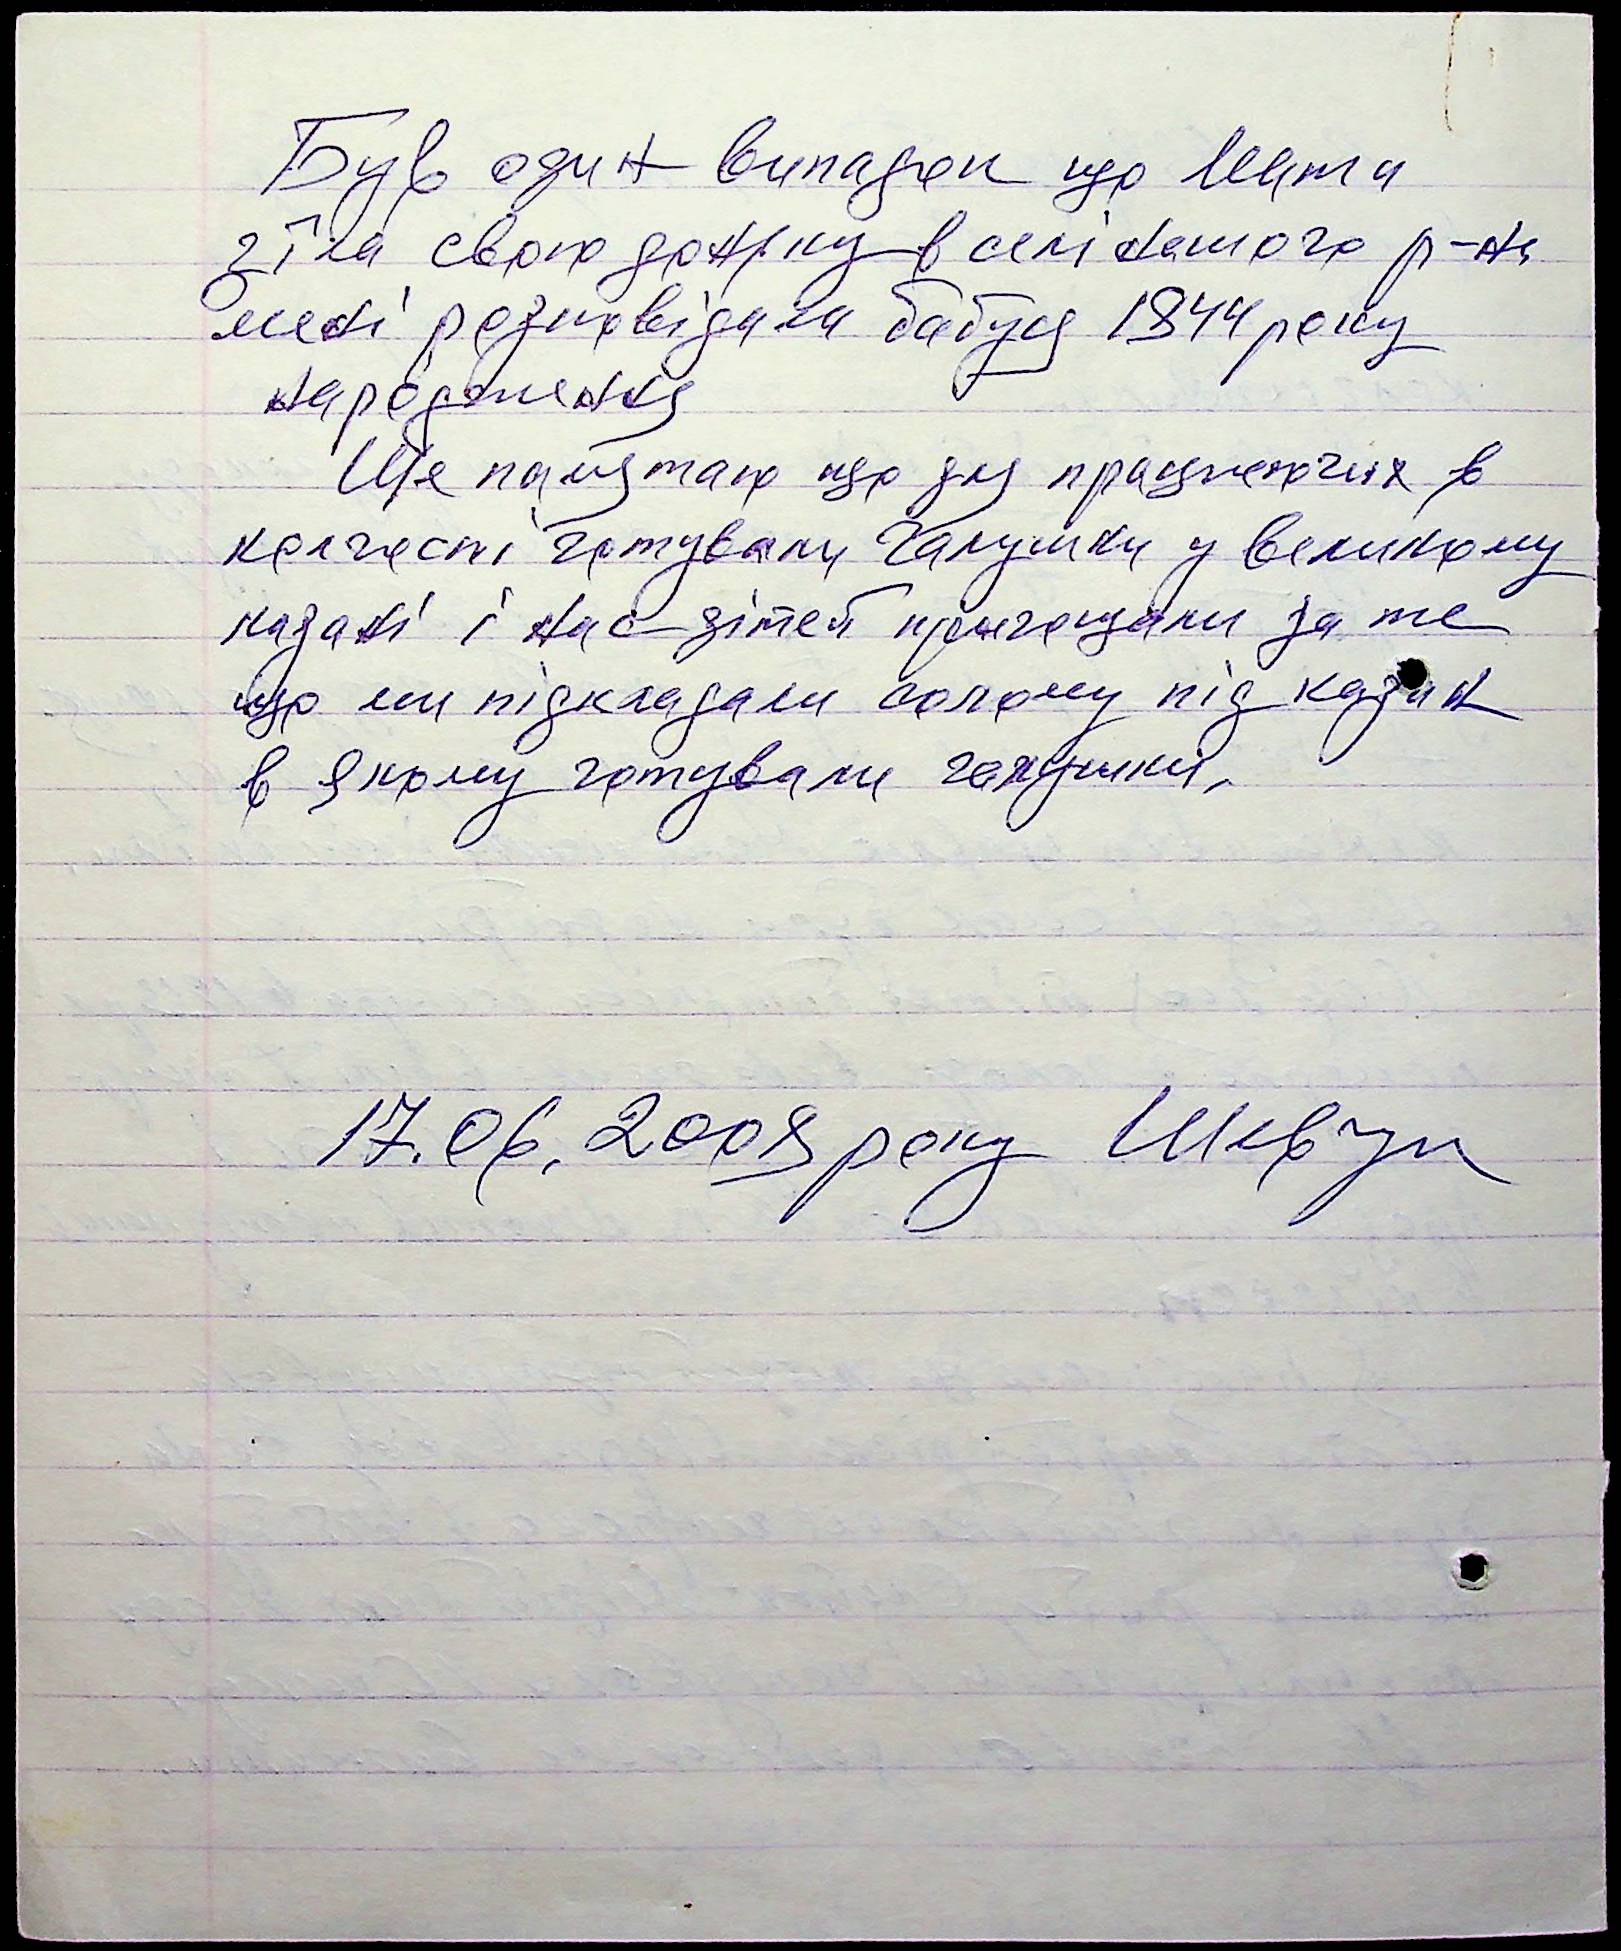 Був один випадок що мати
зїла свою дочку в селі нашого р-на
мені розповідала бабуся 1844 року
народження
Ще памятаю що для працюючих в
колгоспі готували галушки у великому
казані і нас дітей пригощали за те
що ми підкладали солому під казан
в якому готували галушки.
17.06.2008 року Шевчук